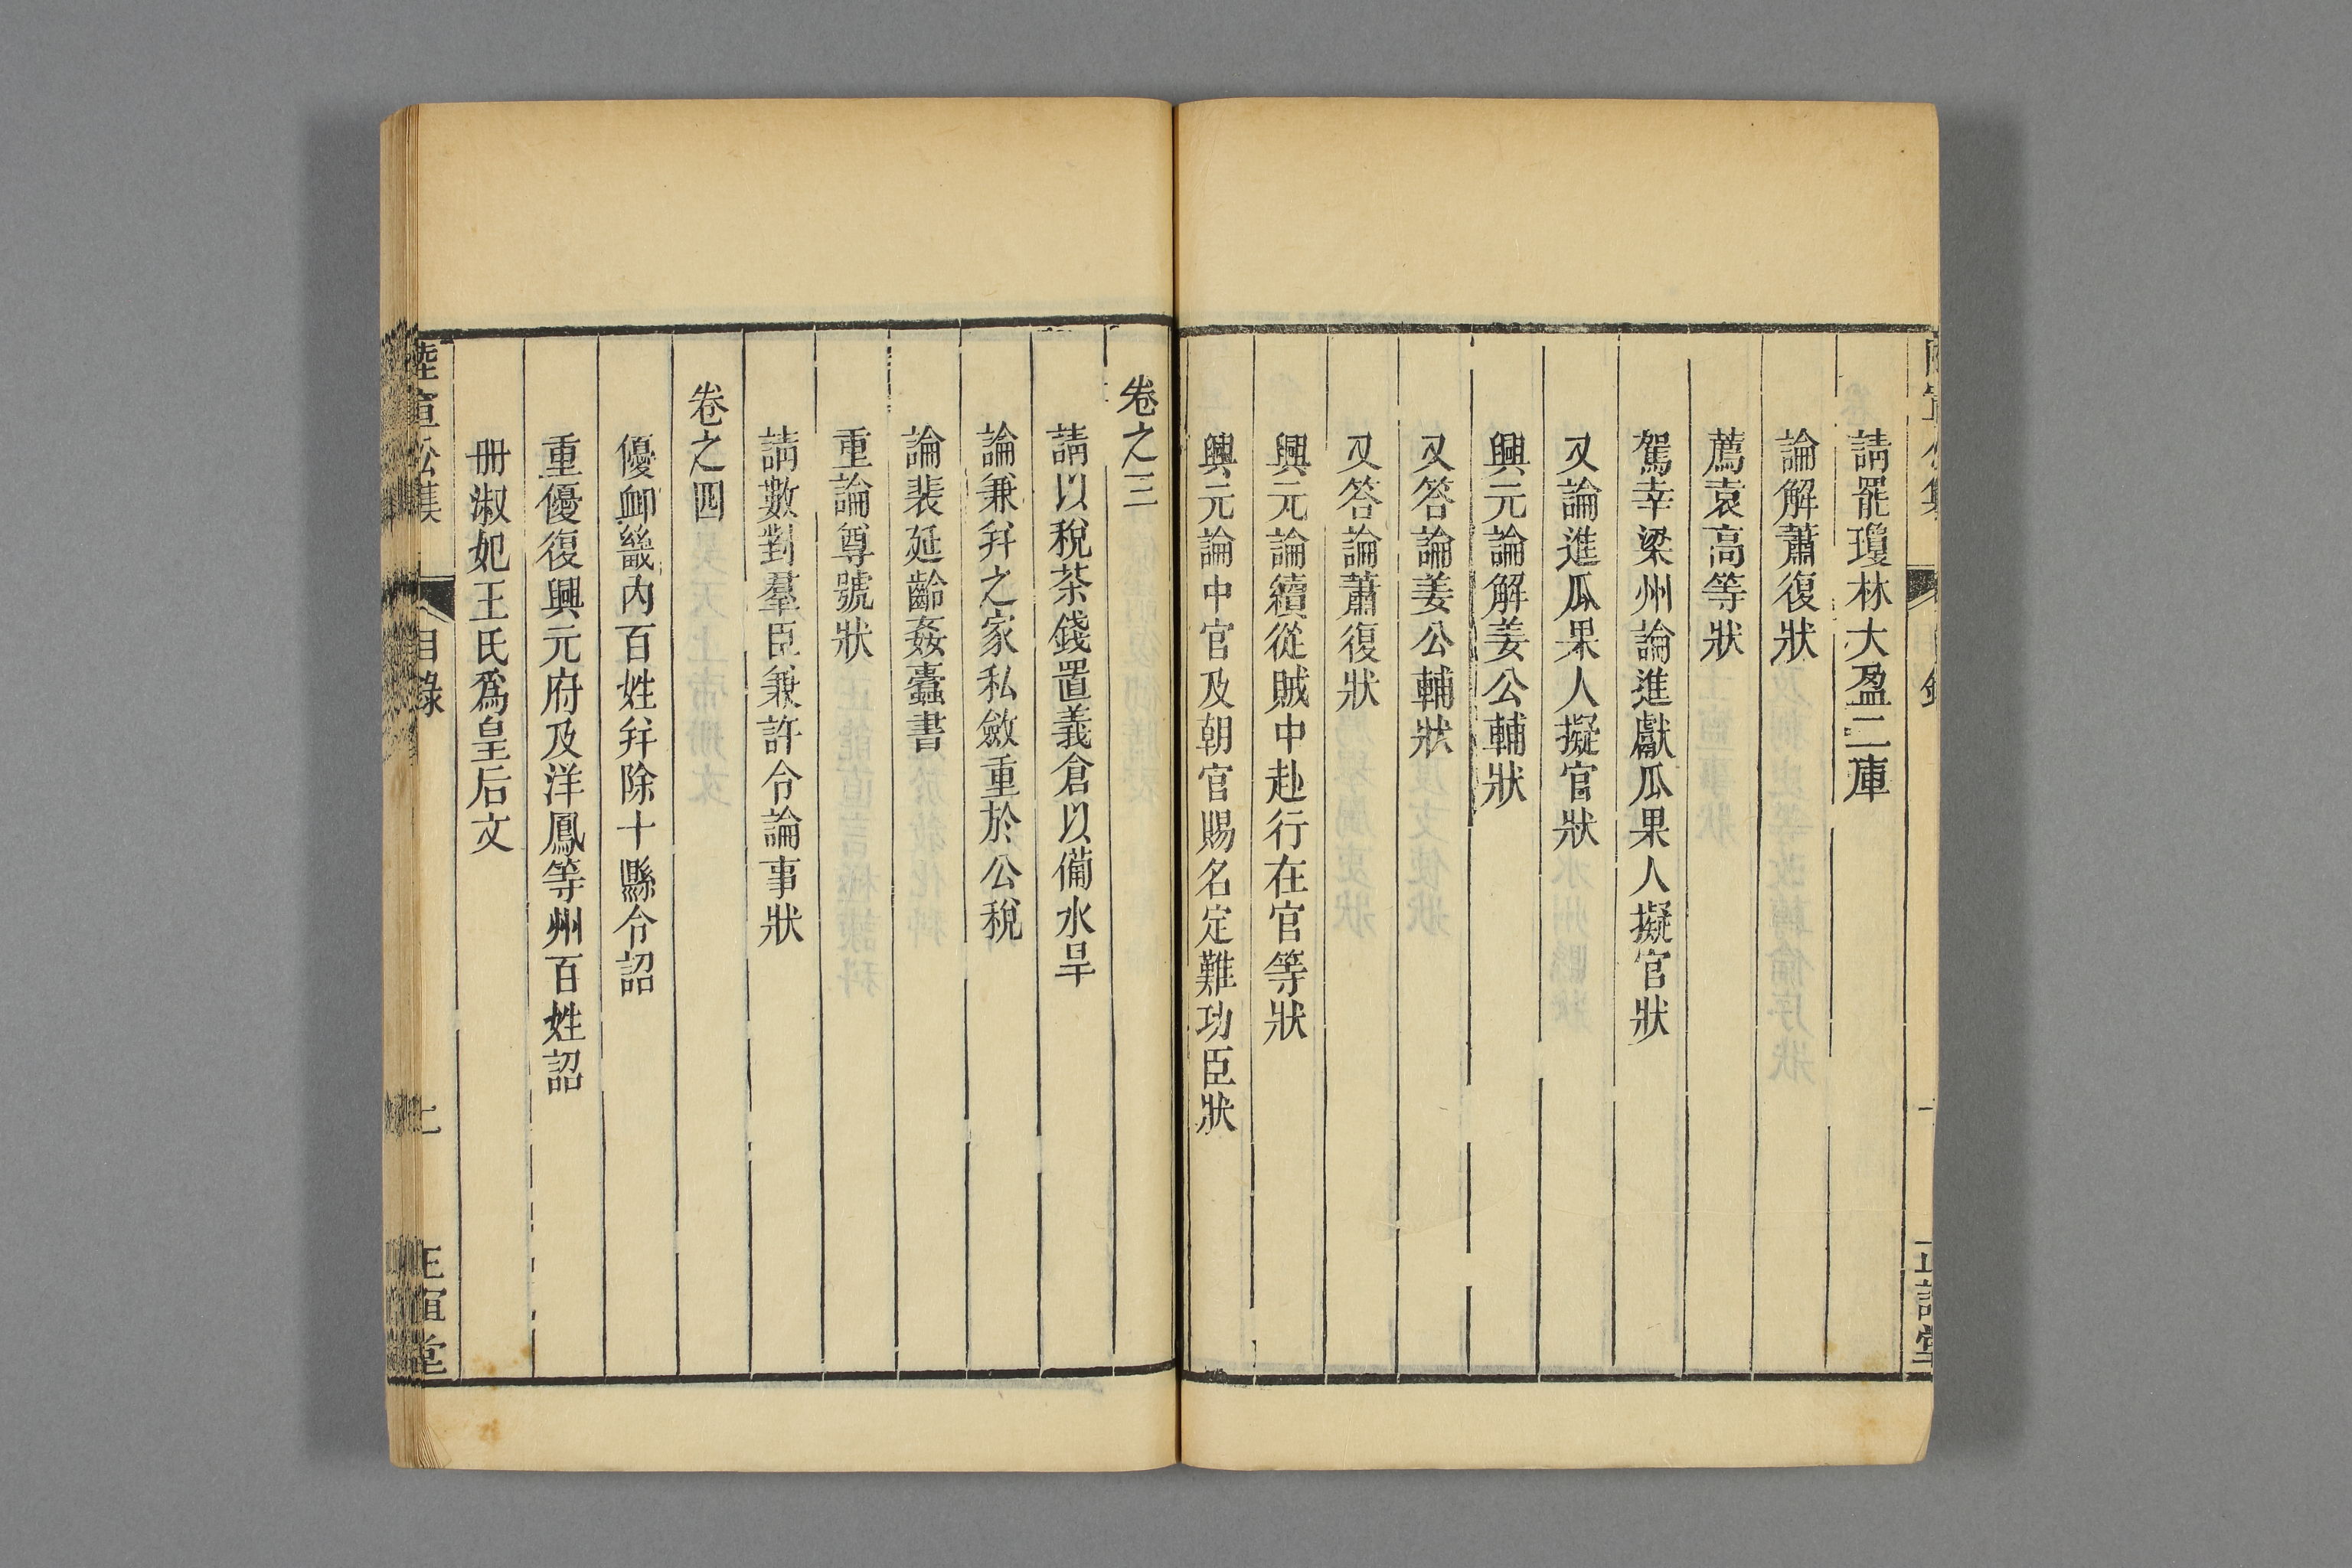 請罷瓊林大盈二庫
論解蕭復狀
薦袁高等狀
駕幸梁州論進獻瓜果人擬官狀
又論進瓜果人擬官狀
興元論解姜公輔狀
又答論姜公輔狀
又答論蕭復狀
興元論續從賊中赴行在官等狀
興元論中官及朝官賜名定難功臣狀
卷之三
請以稅茶錢置義倉以備水旱
論兼幷之家私斂重於公稅
論裴延齡姦蠹書
重論尊號狀
請數對羣臣兼許令論事狀
卷之四
優卹畿內百姓幷除十縣令詔
重優復興元府及洋鳳等州百姓詔
冊淑妃王氏爲皇后文
陸宣公集
目錄
正誼堂